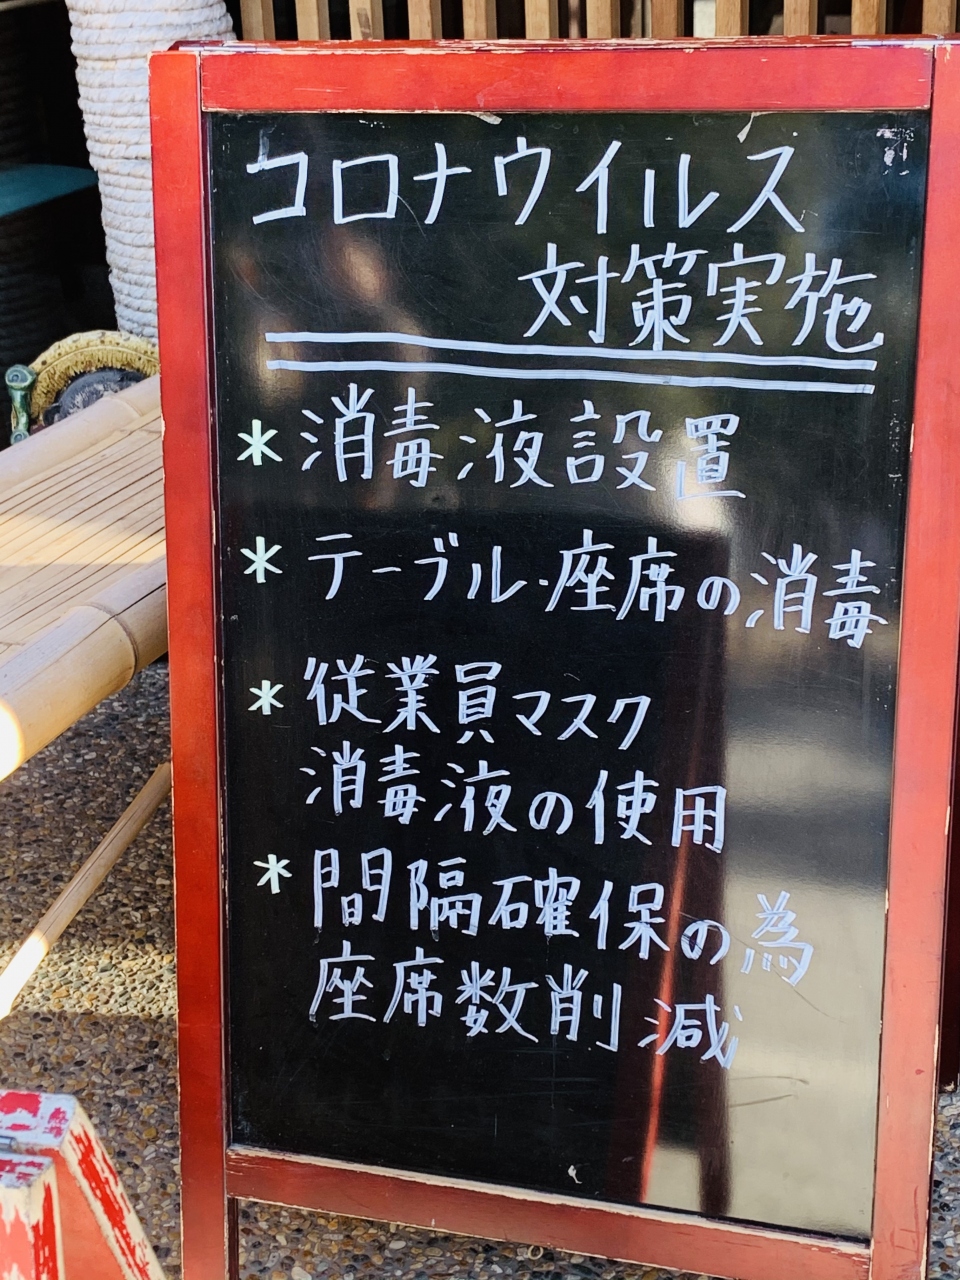 コロナウイルス
対策実施
* 消毒液設置
* テーブル・座席の消毒
* 従業員マスク
消毒液の使用
* 間隔確保の為
座席数削減